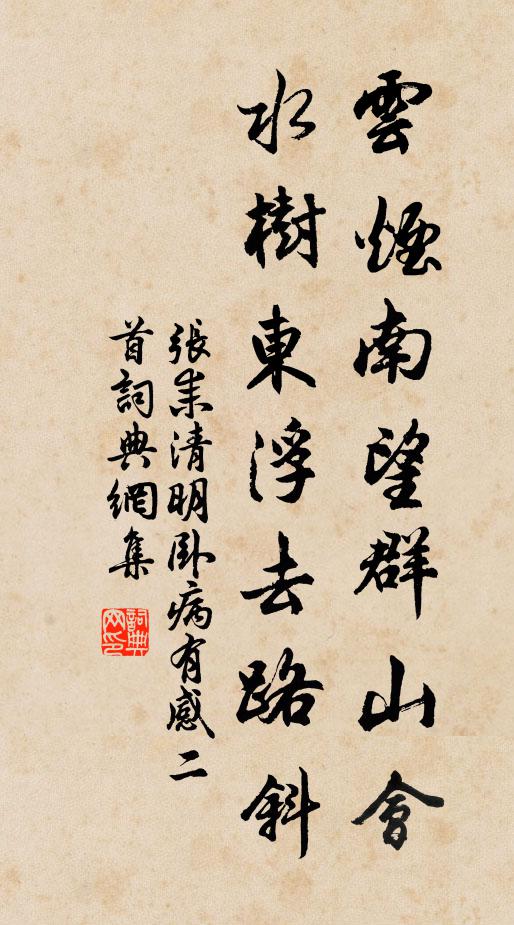 雲煙南望群山會
水樹東浮去路斜
張耒清明卧病有感二
首詞典網集
詞典
网印